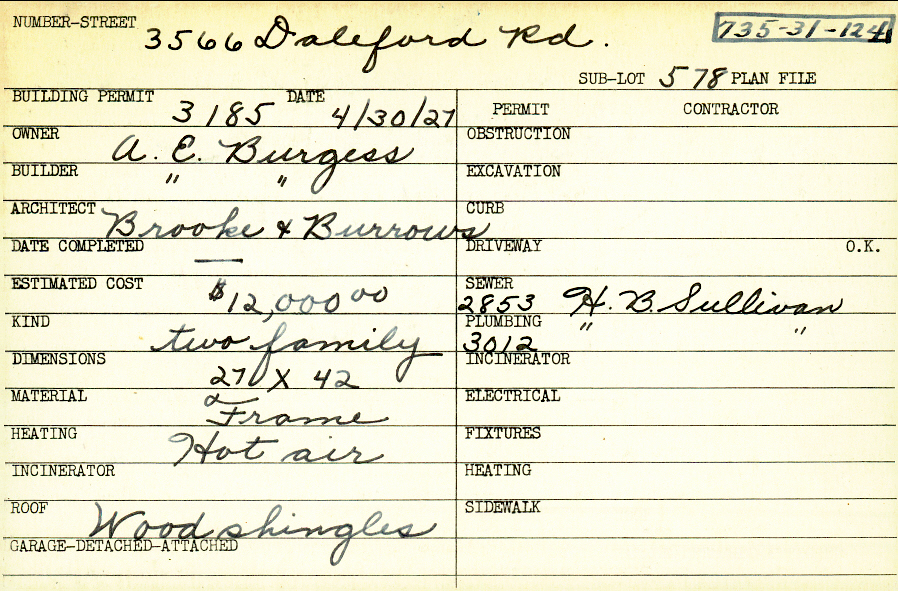 NUMBER-STREET 3566 Daleford Rd. 735-31-124
SUB-LOT 578 PLAN FILE
BUILDING PERMIT 3185 DATE 4/30/27 PERMIT CONTRACTOR
OWNER A. E. Burgess OBSTRUCTION
BUILDER " " EXCAVATION
ARCHITECT Brooke & Burrows CURB
DATE COMPLETED — DRIVEWAY O.K.
ESTIMATED COST $12,000 00 SEWER 2853 H. B. Sullivan
KIND two family PLUMBING 3012 " "
DIMENSIONS 27 X 42 INCINERATOR
MATERIAL Frame ELECTRICAL
HEATING Hot air FIXTURES
INCINERATOR HEATING
ROOF Wood shingles SIDEWALK
GARAGE-DETACHED-ATTACHED